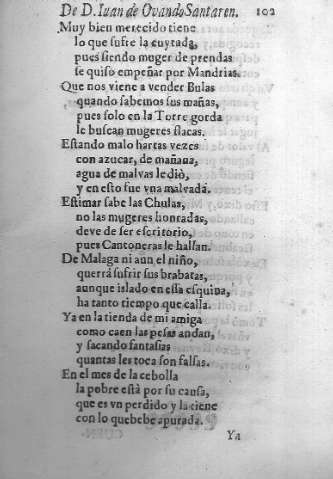 De D. Iuan de Ovando Santaren. 102
Muy bien merecido tiene
lo que sufre la cuytada,
pues siendo muger de prendas
se quiso empeñar por Mandrias.
Que nos viene a vender Bulas
quando sabemos sus mañas,
pues solo en la Torre gorda
le buscan mugeres flacas.
Estando malo hartas vezes
con azucar, de mañana,
agua de malvas le diò,
y en esto fue vna malvada.
Estimar sabe las Chulas,
no las mugeres honradas,
deve de ser escritorio,
pues Cantoneras le hallan.
De Malaga ni aun el niño,
querrà sufrir sus brabatas,
aunque islado en essa esquina,
ha tanto tiempo que calla.
Ya en la tienda de mi amiga
como caen las pesas andan,
y sacando fantasias
quantas les toca son falsas.
En el mes de la cebolla
la pobre està por su causa,
que es vn perdido y la tiene
con lo quebebe apurada.
Ya